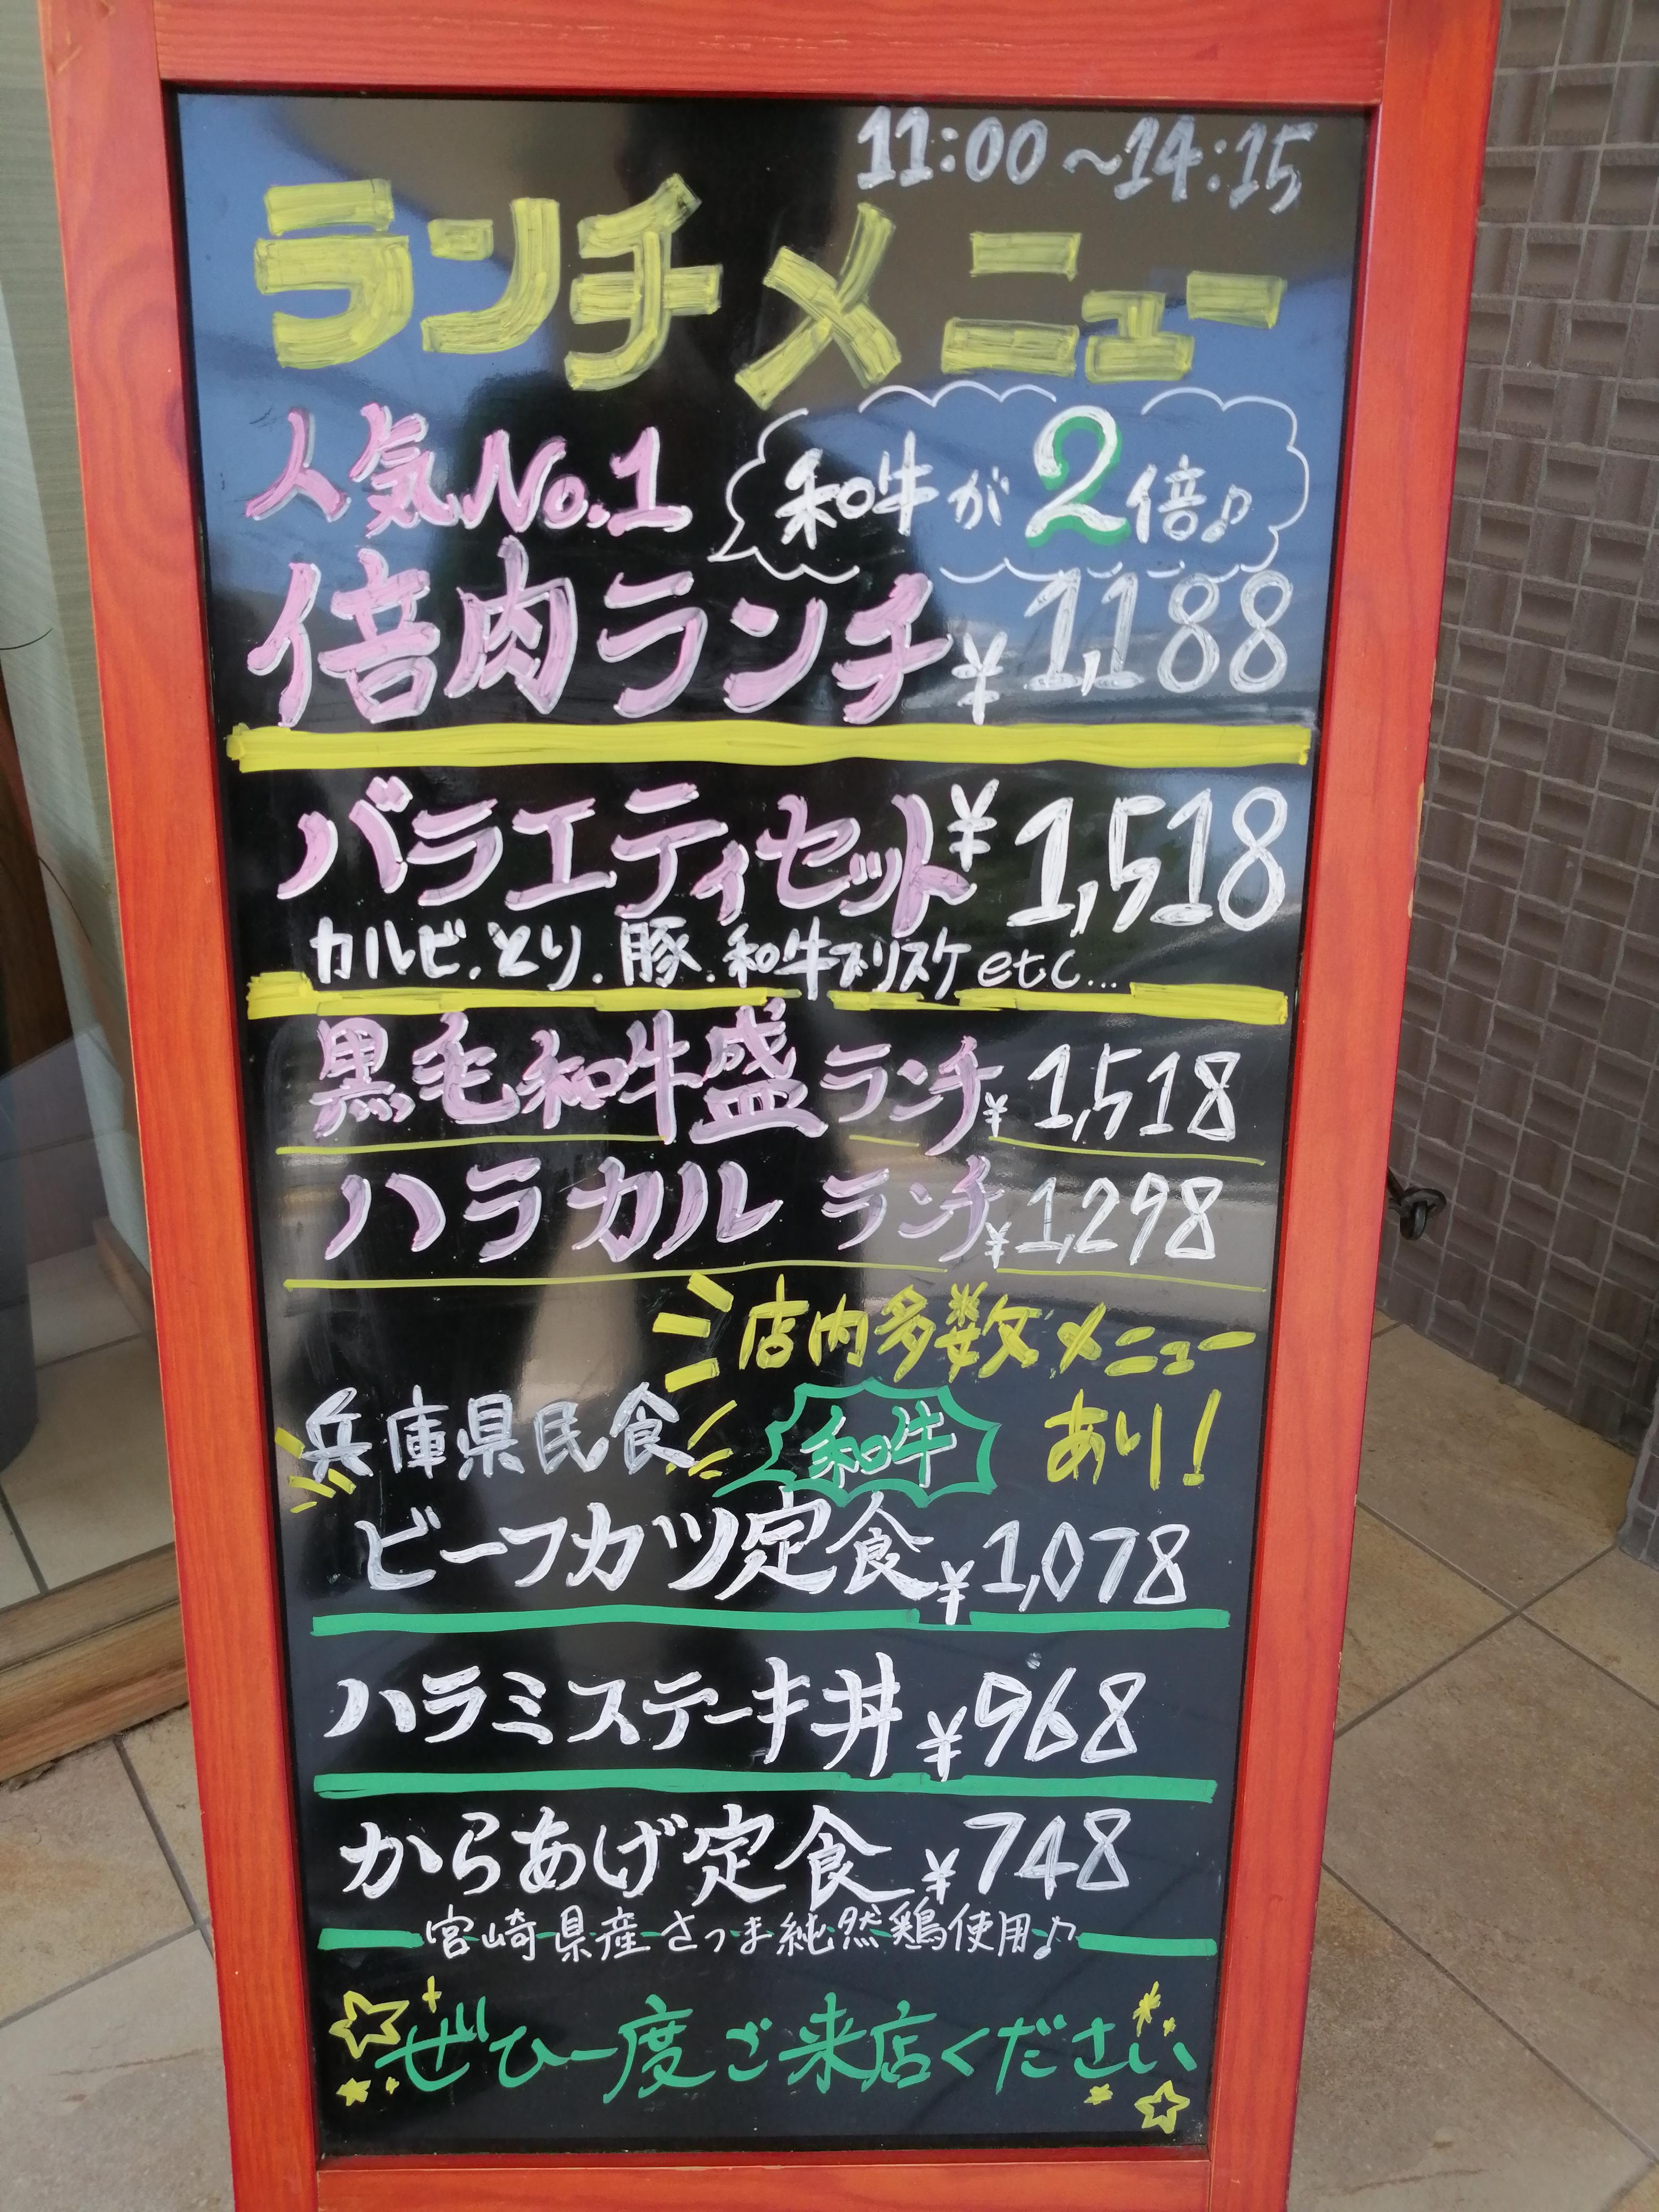 11:00～14:15
ランチメニュー
人気No.1 和牛が2倍♪
倍肉ランチ¥1,188
バラエティセット¥1,518
カルビ.とり.豚.和牛ブリスケ etc...
黒毛和牛盛ランチ¥1,518
ハラカルランチ¥1,298
店内多数メニュー
あり!
兵庫県民食 和牛
ビーフカツ定食¥1,078
ハラミステーキ丼¥968
からあげ定食¥748
宮崎県産さつま純然鶏使用♪
ぜひ一度ご来店ください